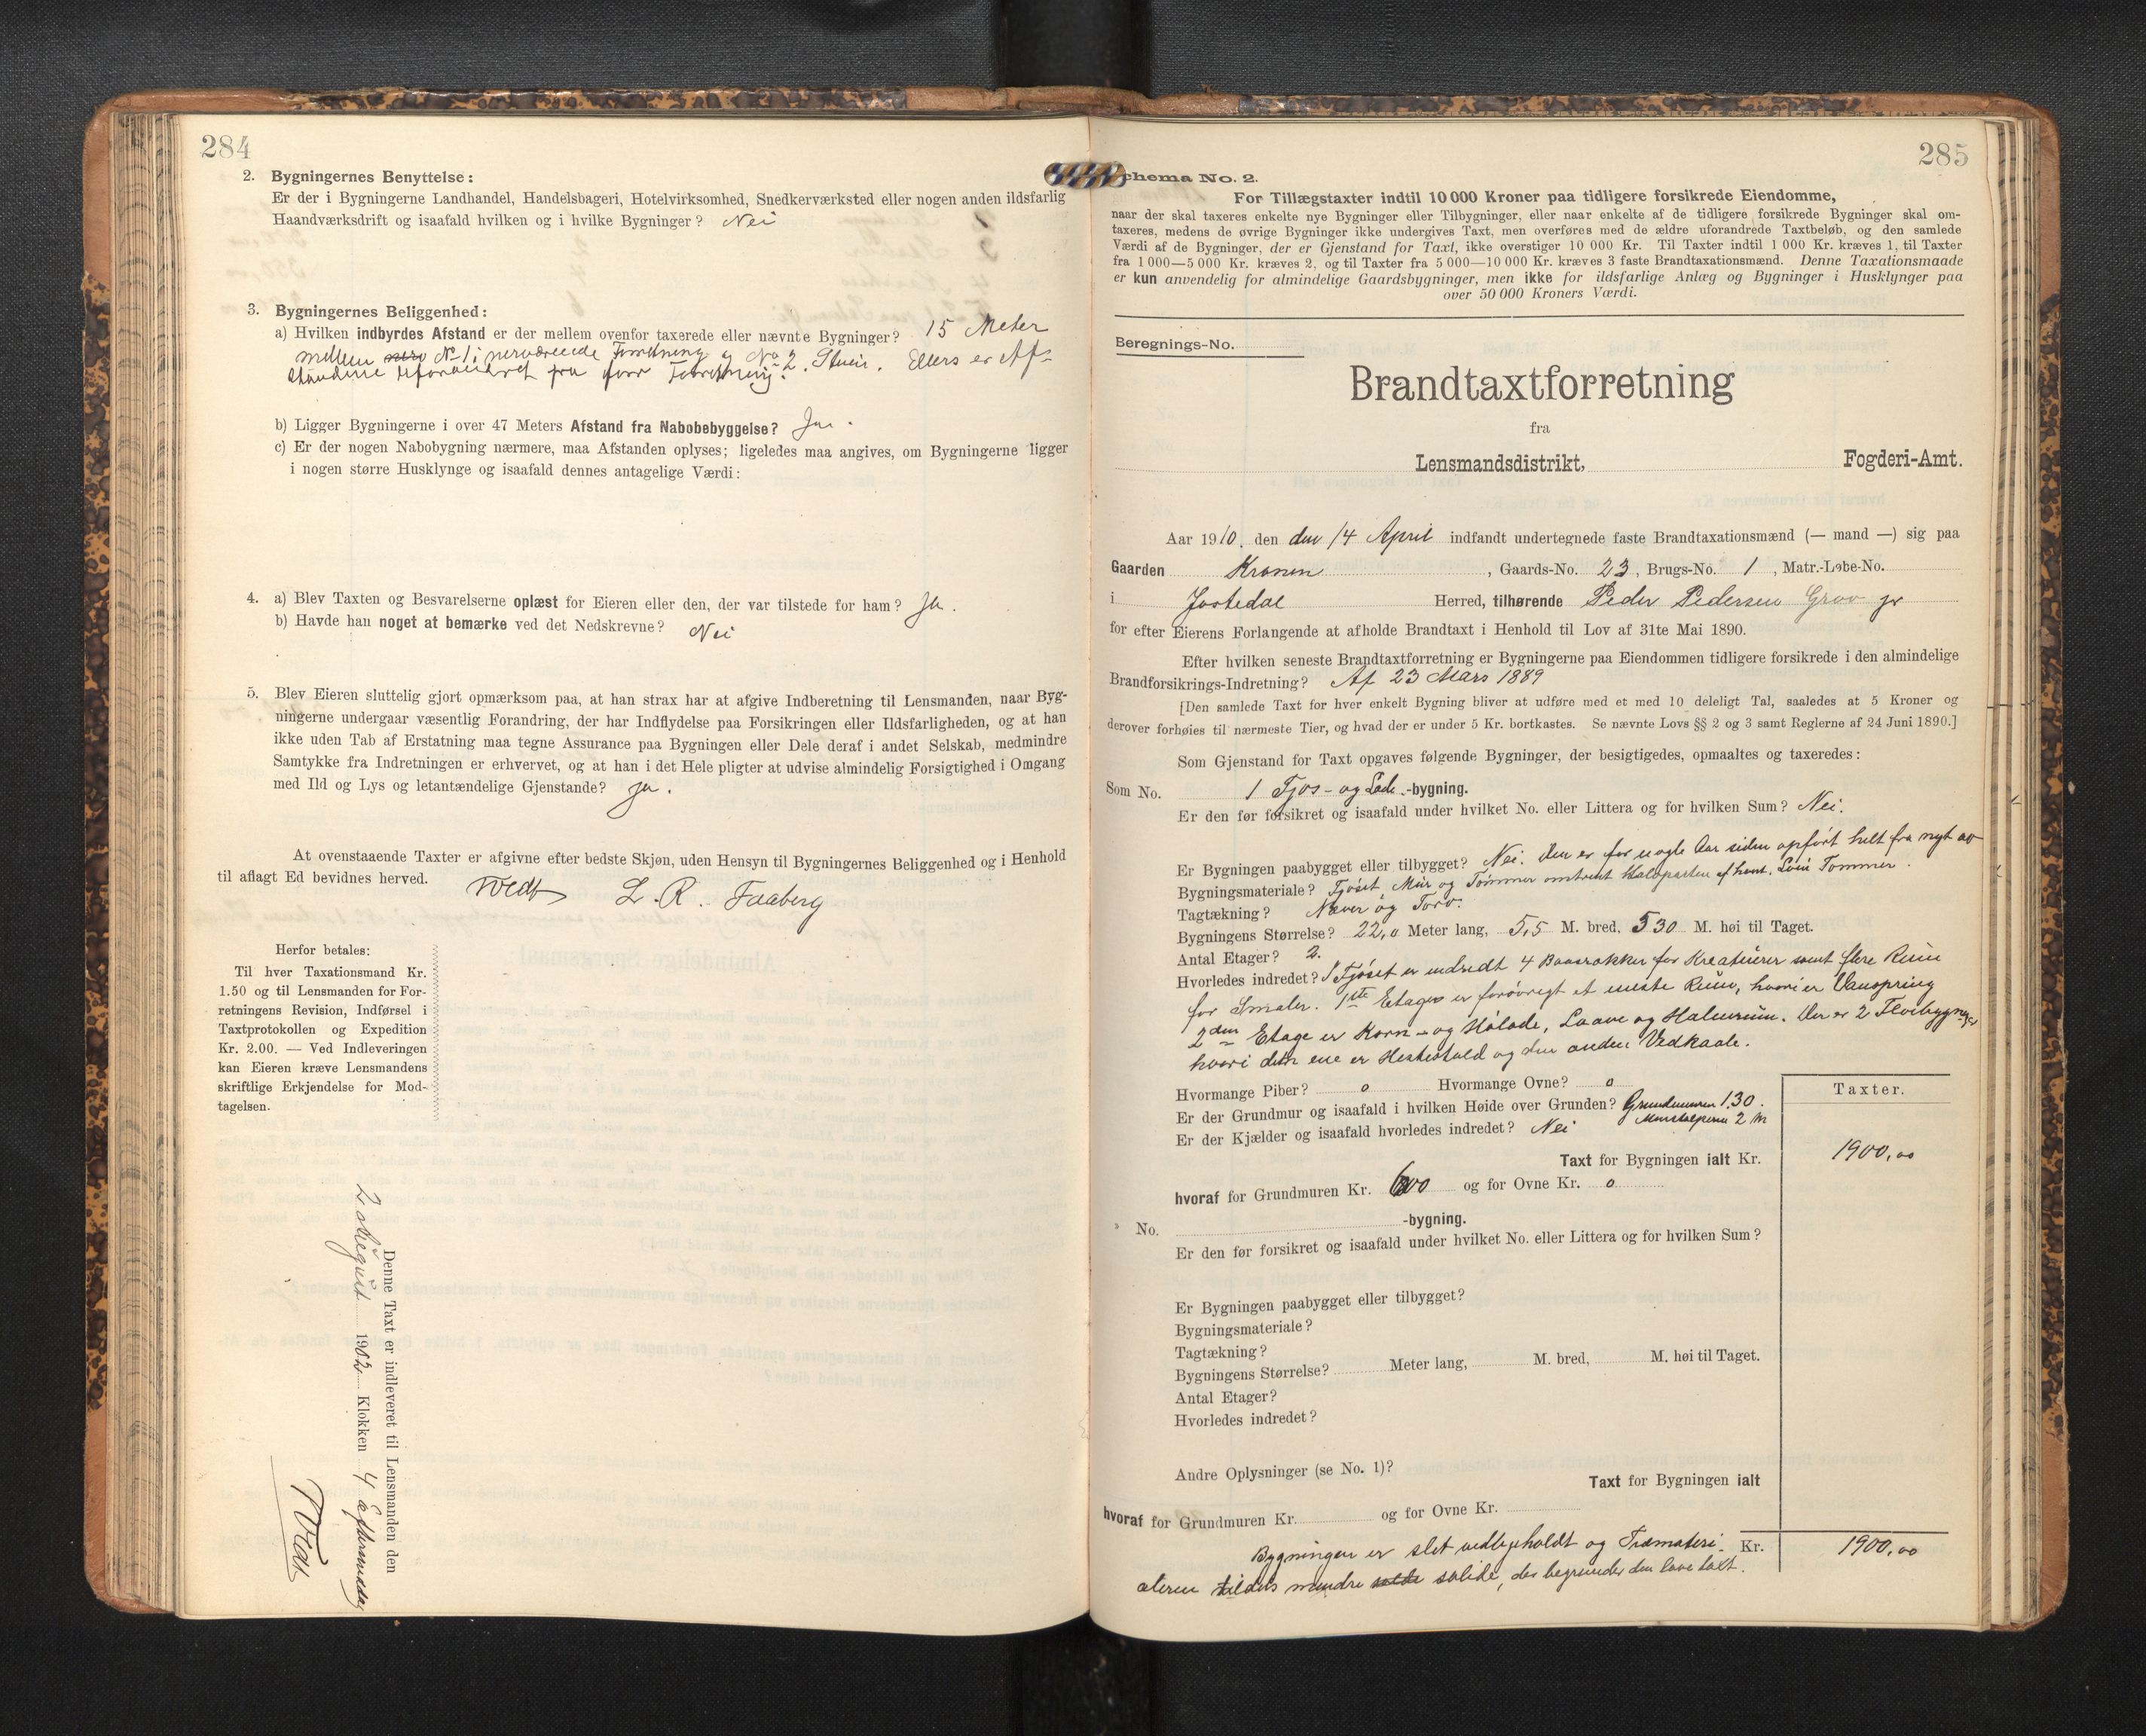 284
2. Bygningernes Benyttelse:
Er der i Bygningerne Landhandel, Handelsbageri, Hotelvirksomhed, Snedkerværksted eller nogen anden ildsfarlig
Haandværksdrift og isaafald hvilken og i hvilke Bygninger? Nei
3. Bygningernes Beliggenhed:
a) Hvilken indbyrdes Afstand er der mellem ovenfor taxerede eller nævnte Bygninger? 15 Meter
mellem No 1 i nerværende Forretning og No 2. Stuen. Ellers er Af-
standene uforandret fra forr Forretning.
b) Ligger Bygningerne i over 47 Meters Afstand fra Nabobebyggelse? Ja.
c) Er der nogen Nabobygning nærmere, maa Afstanden oplyses; ligeledes maa angives, om Bygningerne ligger
i nogen større Husklynge og isaafald dennes antagelige Værdi:
4. a) Blev Taxten og Besvarelserne oplæst for Eieren eller den, der var tilstede for ham? Ja.
b) Havde han noget at bemærke ved det Nedskrevne? Nei
5. Blev Eieren sluttelig gjort opmærksom paa, at han strax har at afgive Indberetning til Lensmanden, naar Byg-
ningerne undergaar væsentlig Forandring, der har Indflydelse paa Forsikringen eller Ildsfarligheden, og at han
ikke uden Tab af Erstatning maa tegne Assurance paa Bygningen eller Dele deraf i andet Selskab, medmindre
Samtykke fra Indretningen er erhvervet, og at han i det Hele pligter at udvise almindelig Forsigtighed i Omgang
med Ild og Lys og letantændelige Gjenstande? Ja.
At ovenstaaende Taxter er afgivne efter bedste Skjøn, uden Hensyn til Bygningernes Beliggenhed og i Henhold
til aflagt Ed bevidnes herved. L. R. Faaberg
Herfor betales:
Til hver Taxationsmand Kr.
1.50 og til Lensmanden for For-
retningens Revision, Indførsel i
Taxtprotokollen og Expedition
Kr. 2.00. — Ved Indleveringen
kan Eieren kræve Lensmandens
skriftlige Erkjendelse for Mod-
tagelsen.
Denne Taxt er indleveret til Lensmanden den
2 August 1902 Klokken 4 Eftermiddag
285
Schema No. 2.
For Tillægstaxter indtil 10 000 Kroner paa tidligere forsikrede Eiendomme,
naar der skal taxeres enkelte nye Bygninger eller Tilbygninger, eller naar enkelte af de tidligere forsikrede Bygninger skal om-
taxeres, medens de øvrige Bygninger ikke undergives Taxt, men overføres med de ældre uforandrede Taxtbeløb, og den samlede
Værdi af de Bygninger, der er Gjenstand for Taxt, ikke overstiger 10 000 Kr. Til Taxter indtil 1 000 Kr. kræves 1, til Taxter
fra 1 000—5 000 Kr. kræves 2, og til Taxter fra 5 000—10 000 Kr. kræves 3 faste Brandtaxationsmænd. Denne Taxationsmaade
er kun anvendelig for almindelige Gaardsbygninger, men ikke for ildsfarlige Anlæg og Bygninger i Husklynger paa
over 50 000 Kroners Værdi.
Beregnings-No.
Brandtaxtforretning
fra
Lensmandsdistrikt, Fogderi-Amt.
Aar 1910, den den 14 April indfandt undertegnede faste Brandtaxationsmænd (— mand —) sig paa
Gaarden Kronen, Gaards-No. 23, Brugs-No. 1, Matr.-Løbe-No.
i Jostedal Herred, tilhørende Peder Pedersen Grov jr
for efter Eierens Forlangende at afholde Brandtaxt i Henhold til Lov af 31te Mai 1890.
Efter hvilken seneste Brandtaxtforretning er Bygningerne paa Eiendommen tidligere forsikrede i den almindelige
Brandforsikrings-Indretning? Af 23 Mars 1889
[Den samlede Taxt for hver enkelt Bygning bliver at udføre med et med 10 deleligt Tal, saaledes at 5 Kroner og
derover forhøies til nærmeste Tier, og hvad der er under 5 Kr. bortkastes. Se nævnte Lovs §§ 2 og 3 samt Reglerne af 24 Juni 1890.]
Som Gjenstand for Taxt opgaves følgende Bygninger, der besigtigedes, opmaaltes og taxeredes:
Som No. 1 Fjøs- og Lade-bygning.
Er den før forsikret og isaafald under hvilket No. eller Littera og for hvilken Sum? Nei.
Er Bygningen paabygget eller tilbygget? Nei. Den er for nogle Aar siden opført helt fra nyt av
Bygningsmateriale? Fjøset Mur og Tømmer omtrent Halvparten af hvert. Loen Tømmer.
Tagtækning? Næver og Torv.
Bygningens Størrelse? 22,0 Meter lang, 5,5 M. bred, 5 30 M. høi til Taget.
Antal Etager? 2.
Hvorledes indredet? I Fjøset er indredt 4 Baasrækker for Kreaturer samt flere Rum
for Smaler. 1ste Etage er forøvrigt et eneste Rum, hvori er Vanspring
2den Etage er Korn- og Hølade, Laave og Halmrum. Der er 2 Tilbygninger
hvori den ene er Hestestald og den anden Vedkaale.
Hvormange Piber? 0 Hvormange Ovne? 0
Er der Grundmur og isaafald i hvilken Høide over Grunden? Grundmuren 1.30.
2 m
Er der Kjælder og isaafald hvorledes indredet? Nei
Taxter.
Taxt for Bygningen ialt Kr. 1900,00
hvoraf for Grundmuren Kr. 600 og for Ovne Kr. 0
No. -bygning.
Er den før forsikret og isaafald under hvilket No. eller Littera og for hvilken Sum?
Er Bygningen paabygget eller tilbygget?
Bygningsmateriale?
Tagtækning?
Bygningens Størrelse? Meter lang, M. bred, M. høi til Taget.
Antal Etager?
Hvorledes indredet?
Andre Oplysninger (se No. 1)?
Taxt for Bygningen ialt
hvoraf for Grundmuren Kr. og for Ovne Kr.
Kr. 1900,00
Bygningen er slet vedligeholdt og Træmateri-
alerne tildels mindre solide, der begrunder den lave taxt.